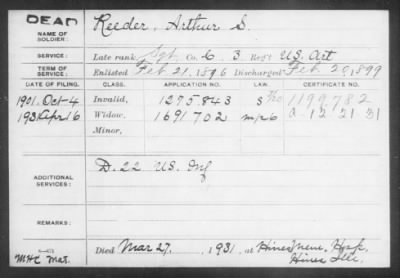 DEAD
NAME OF SOLDIER: Reeder, Arthur S.
SERVICE: Late rank, Sgt Co. G. 3 Reg't U.S. Art
TERM OF SERVICE: Enlisted Feb 21, 1896 Discharged Feb 20, 1899
DATE OF FILING. CLASS. APPLICATION NO. LAW. CERTIFICATE NO.
1901. Oct-4 Invalid, 1275.843 S 1199,782
1931 Apr 16 Widow, 1691702 A 12 21 31
Minor,
ADDITIONAL SERVICES: D. 22 U.S. Inf
REMARKS:
MHC Mat. Died Mar 27, 1931, at Hines Hosp.
Hines Ill.